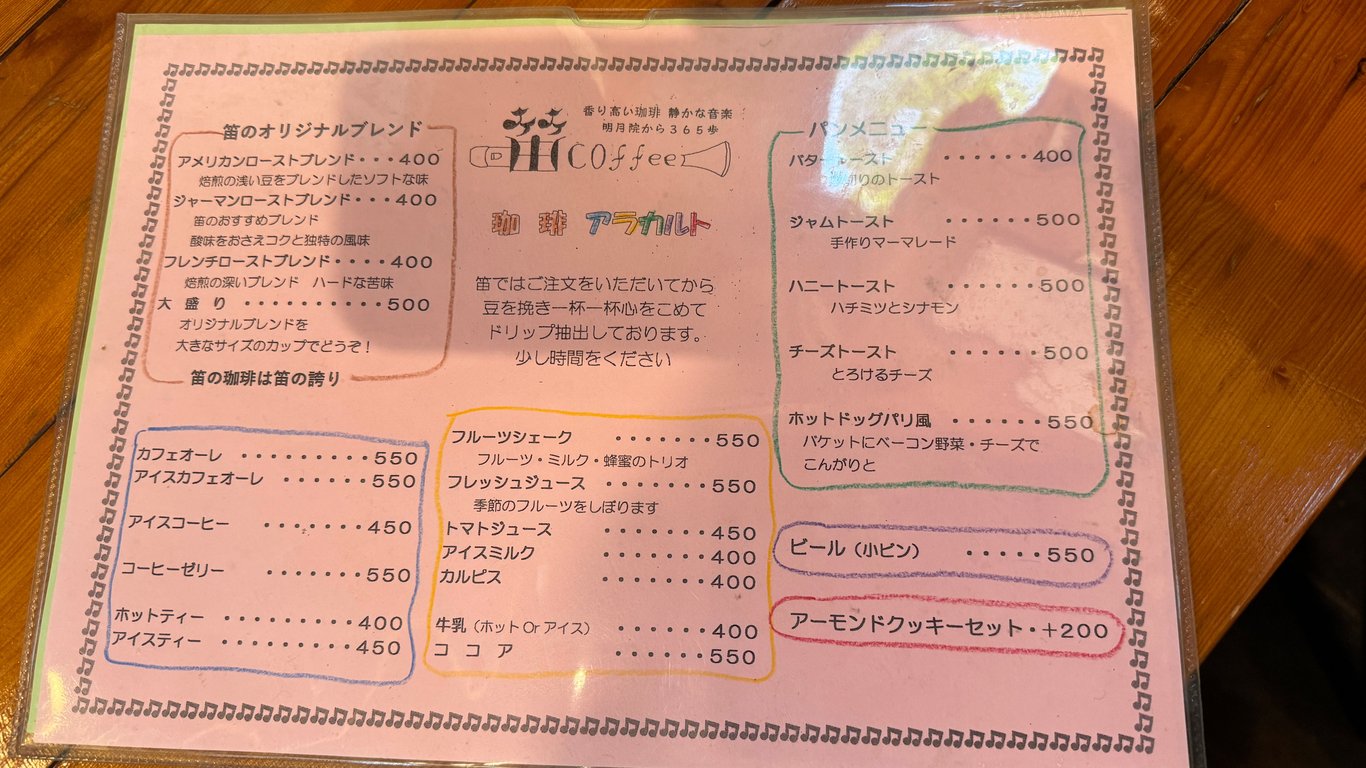 香り高い珈琲 静かな音楽
明月院から365歩
笛 Coffee
珈琲 アラカルト
笛ではご注文をいただいてから
豆を挽き一杯一杯心をこめて
ドリップ抽出しております。
少し時間をください
笛のオリジナルブレンド
アメリカンローストブレンド・・・400
焙煎の浅い豆をブレンドしたソフトな味
ジャーマンローストブレンド・・・400
笛のおすすめブレンド
酸味をおさえコクと独特の風味
フレンチローストブレンド・・・・400
焙煎の深いブレンド ハードな苦味
大 盛 り ・・・・・・・・・・500
オリジナルブレンドを
大きなサイズのカップでどうぞ!
笛の珈琲は笛の誇り
カフェオーレ ・・・・・・・・・550
アイスカフェオーレ ・・・・・・550
アイスコーヒー ・・・・・・・450
コーヒーゼリー ・・・・・・・550
ホットティー ・・・・・・・・・400
アイスティー ・・・・・・・・・450
フルーツシェーク ・・・・・・・550
フルーツ・ミルク・蜂蜜のトリオ
フレッシュジュース ・・・・・・・550
季節のフルーツをしぼります
トマトジュース ・・・・・・・450
アイスミルク ・・・・・・・400
カルピス ・・・・・・・400
牛乳(ホット Or アイス) ・・・・・・400
コ コ ア ・・・・・・550
パンメニュー
バタートースト ・・・・・・400
りのトースト
ジャムトースト ・・・・・・500
手作りマーマレード
ハニートースト ・・・・・・500
ハチミツとシナモン
チーズトースト ・・・・・・500
とろけるチーズ
ホットドッグパリ風 ・・・・・・550
バケットにベーコン野菜・チーズで
こんがりと
ビール(小ビン) ・・・・・550
アーモンドクッキーセット・+200